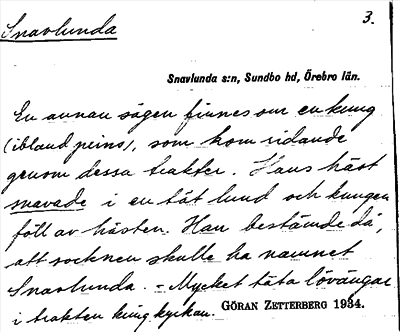 Snavlunda
3.
Snavlunda s:n, Sundbo hd, Örebro län.
En annan sägen finnes om en kung
(ibland prins), som kom ridande
genom dessa trakter. Hans häst
snavade i en tät lund och kungen
föll av hästen. Han bestämde då,
att socknen skulle ha namnet
Snavlunda. - Mycket täta lövängar
i trakten kring kyrkan.
GÖRAN ZETTERBERG 1934.